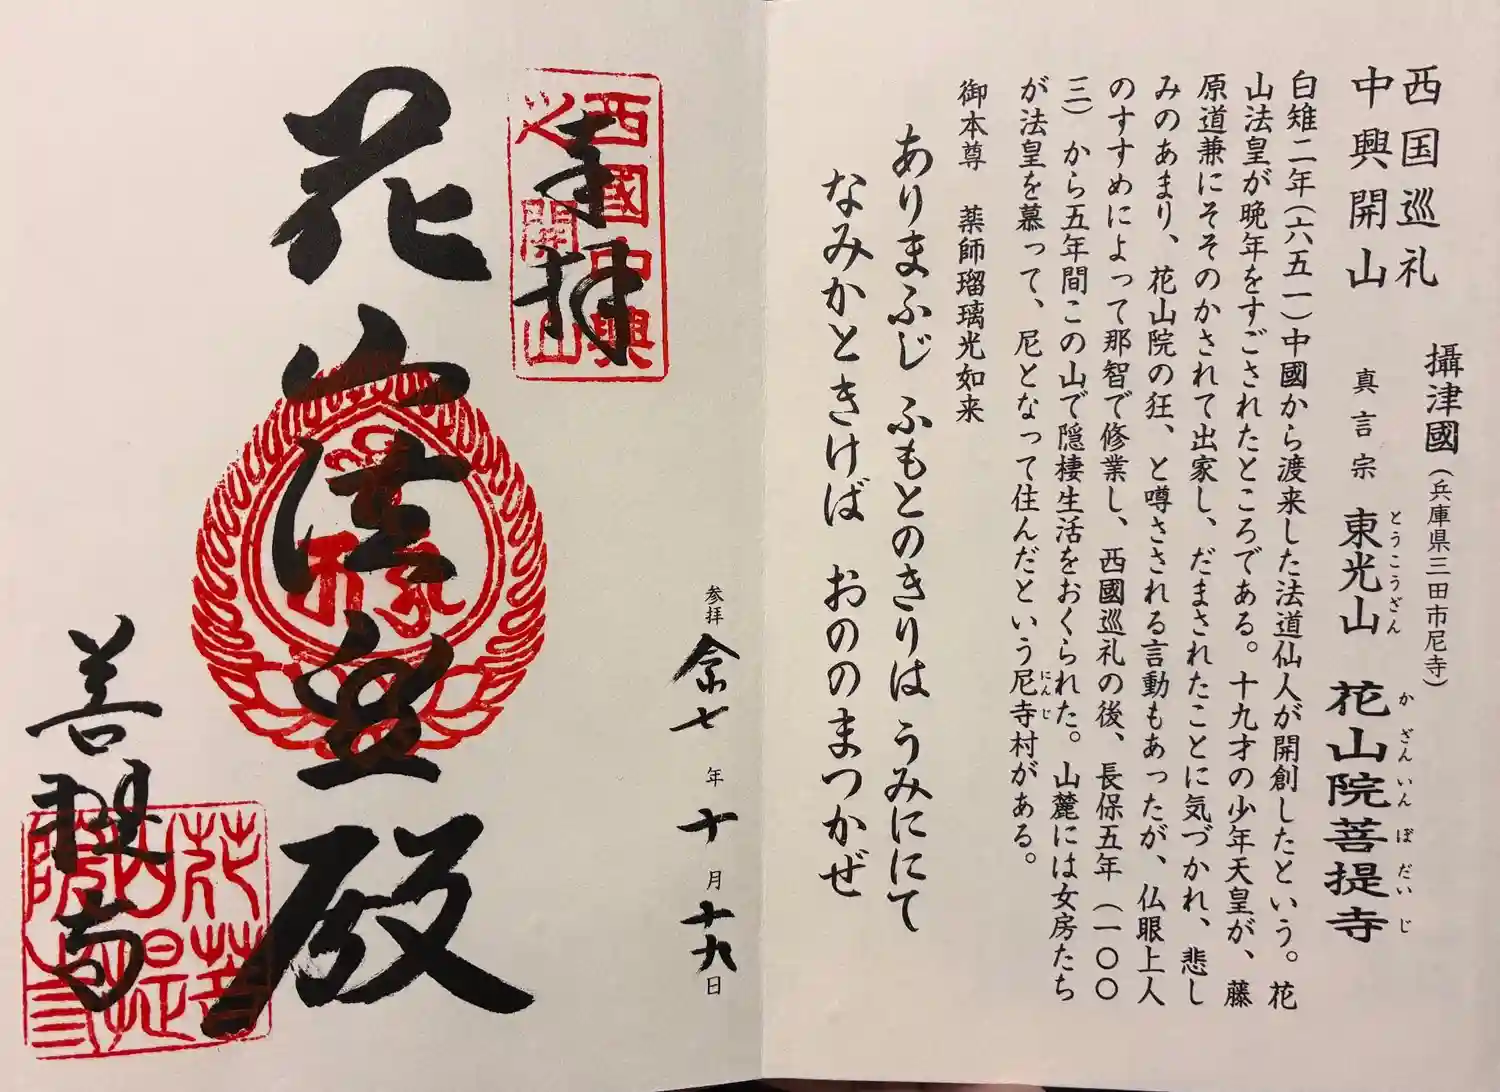 西国巡礼
中興開山
攝津國(兵庫県三田市尼寺)
真言宗 東光山 花山院菩提寺
とうこうざん かざんいんぼだいじ
白雉二年(六五一)中國から渡来した法道仙人が開創したという。花
山法皇が晩年をすごされたところである。十九才の少年天皇が、藤
原道兼にそそのかされて出家し、だまされたことに気づかれ、悲し
みのあまり、花山院の狂、と噂される言動もあったが、仏眼上人
のすすめによって那智で修業し、西國巡礼の後、長保五年(一〇〇
三)から五年間この山で隠棲生活をおくられた。山麓には女房たち
が法皇を慕って、尼となって住んだという尼寺村がある。
にんじ
御本尊 薬師瑠璃光如来
ありまふじ ふもとのきりは うみににて
なみかときけば おののまつかぜ
参拝 令七年十月十九日
西國中興
之開山
奉拝
花山法皇殿
菩提寺
花菩
山提
院寺